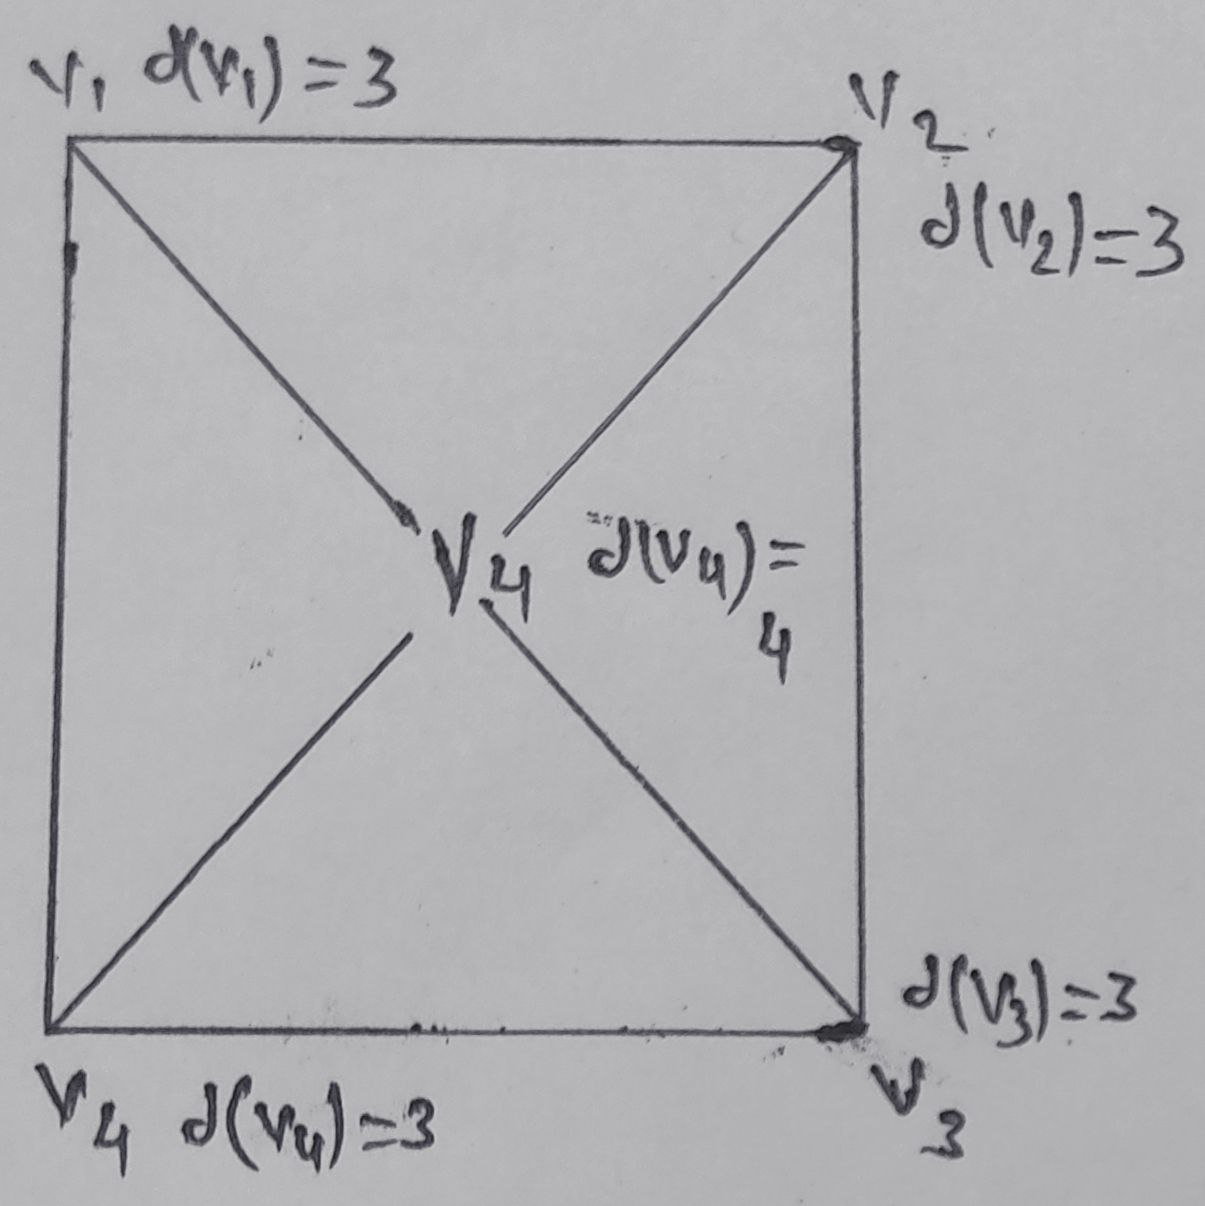 V1 d(V1)=3
V2
d(V2)=3
V4 d(V4)=
4
d(V3)=3
V3
V4 d(V4)=3